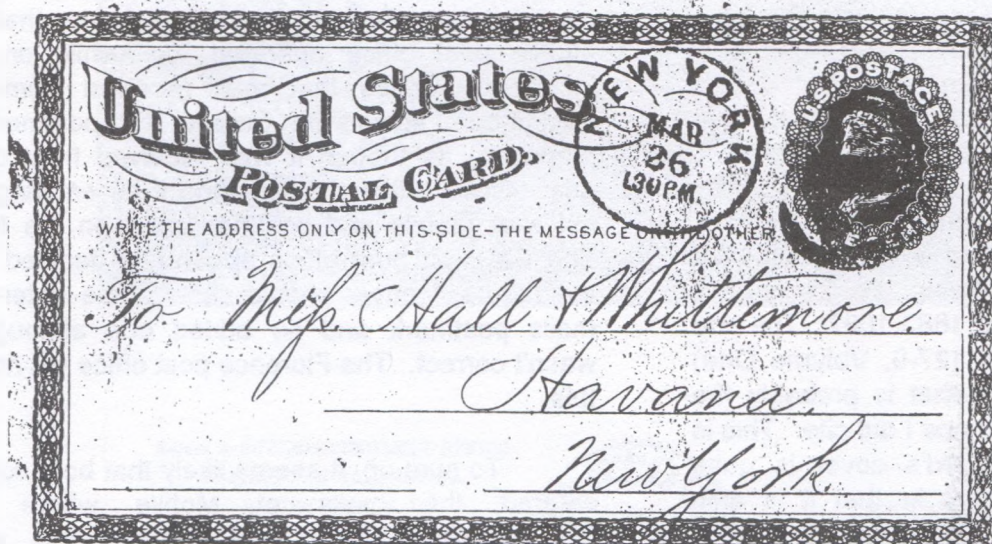 United States
POSTAL CARD.
NEW YORK
MAR
26
1.30 PM
U.S. POSTAGE
WRITE THE ADDRESS ONLY ON THIS SIDE-THE MESSAGE ON THE OTHER
To Mess. Hall & Whittemore.
Havana.
New York.